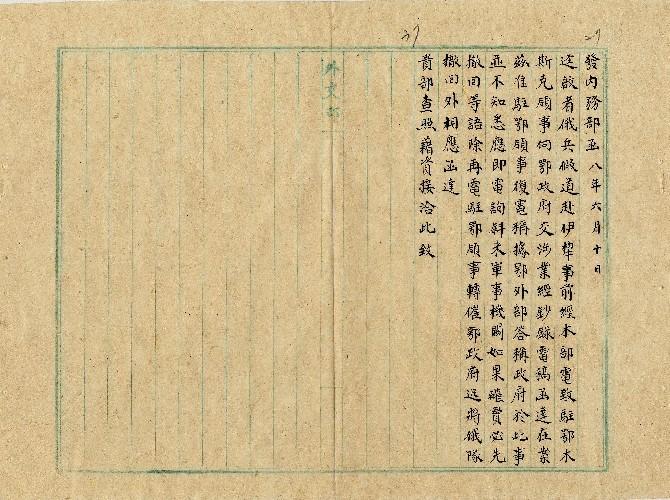 發內務部函八年六月十日
逕啟者俄兵假道赴伊犂事前經本部電致駐鄂木
斯克領事向鄂政府交涉業經鈔錄電稿函達在案
茲准駐鄂領事復電稱據鄂外部答稱政府於此事
並不知悉應即電詢斜米軍事機關如果確實必先
撤回等語除再電駐鄂領事轉催鄂政府迅將俄隊
撤回外相應函達
貴部查照藉資接洽此致
外交部